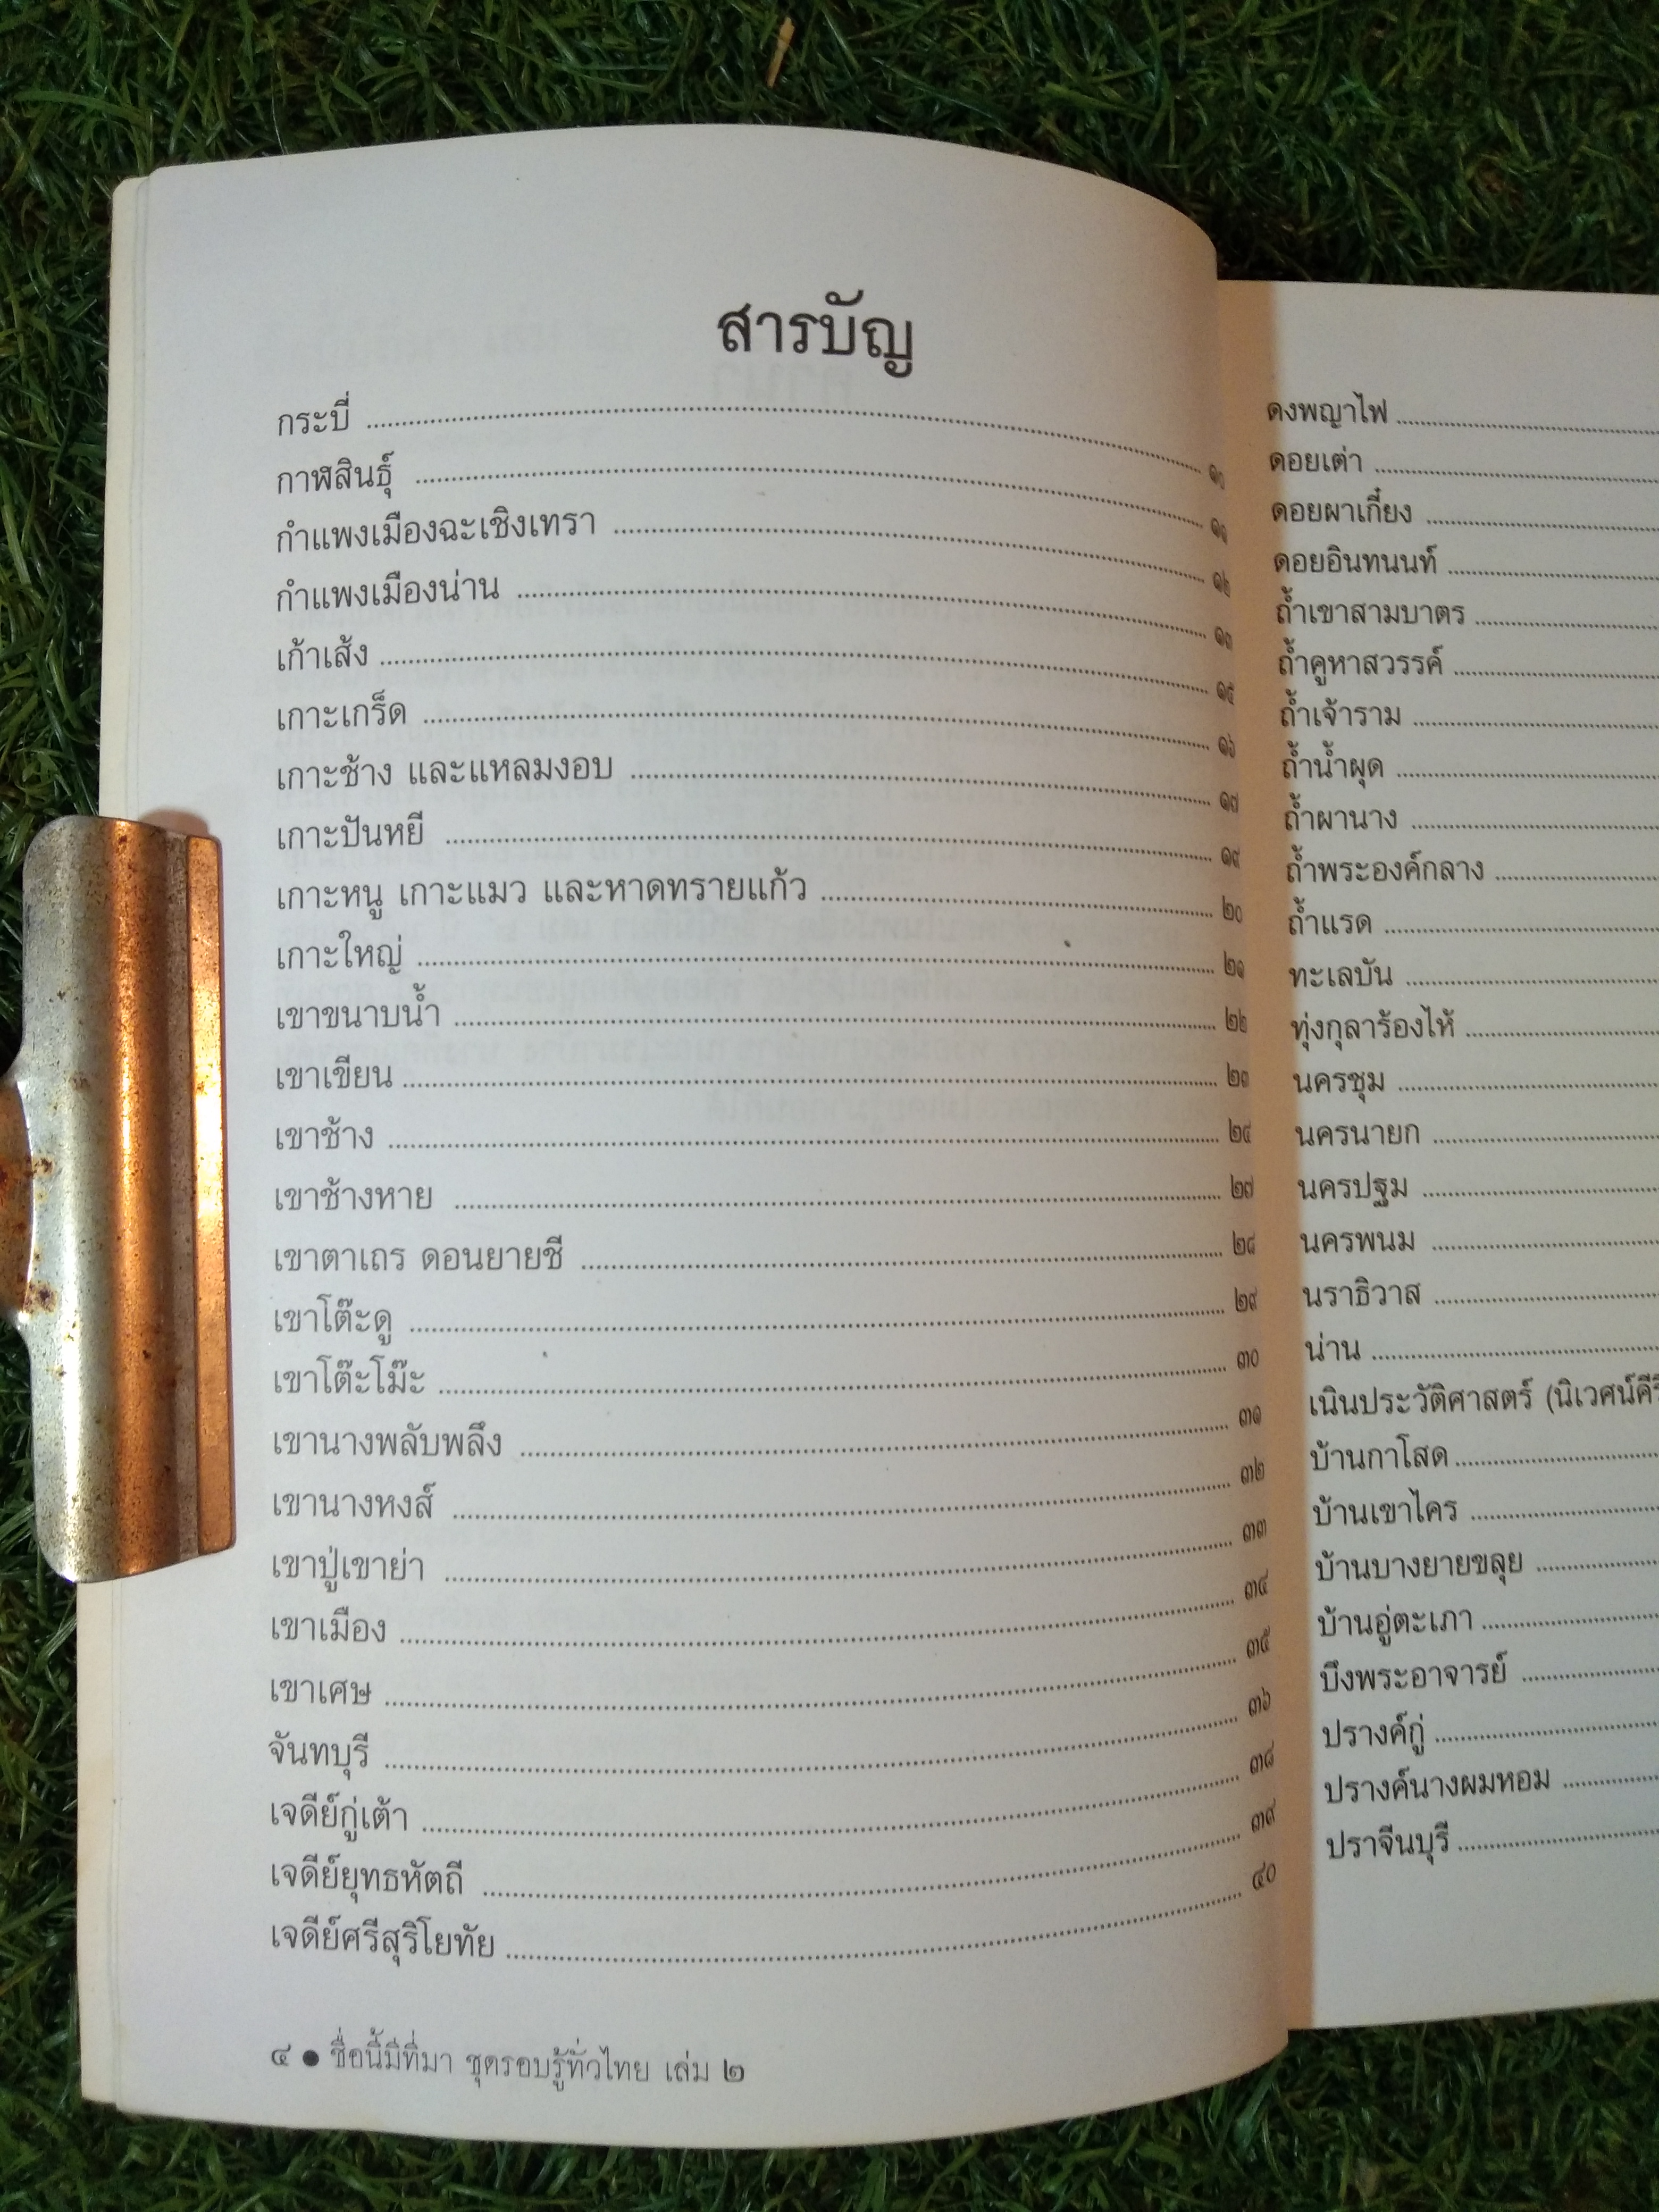 สารบัญ
กระบี่ ........ ๑๐
กาฬสินธุ์ ........ ๑๑
กำแพงเมืองฉะเชิงเทรา ........ ๑๒
กำแพงเมืองน่าน ........ ๑๓
เก้าเส้ง ........ ๑๕
เกาะเกร็ด ........ ๑๖
เกาะช้าง และแหลมงอบ ........ ๑๗
เกาะปันหยี ........ ๑๙
เกาะหนู เกาะแมว และหาดทรายแก้ว ........ ๒๐
เกาะใหญ่ ........ ๒๑
เขาขนาบน้ำ ........ ๒๒
เขาเขียน ........ ๒๓
เขาช้าง ........ ๒๔
เขาช้างหาย ........ ๒๗
เขาตาเถร ดอนยายชี ........ ๒๘
เขาโต๊ะดู ........ ๒๙
เขาโต๊ะโม๊ะ ........ ๓๐
เขานางพลับพลึง ........ ๓๑
เขานางหงส์ ........ ๓๒
เขาปู่เขาย่า ........ ๓๓
เขาเมือง ........ ๓๔
เขาเศษ ........ ๓๕
จันทบุรี ........ ๓๖
เจดีย์กู่เต้า ........ ๓๘
เจดีย์ยุทธหัตถี ........ ๓๙
เจดีย์ศรีสุริโยทัย ........ ๔๐
๔ ● ชื่อนี้มีที่มา ชุดรอบรู้ทั่วไทย เล่ม ๒
ดงพญาไฟ ........
ดอยเต่า ........
ดอยผาเกี๋ยง ........
ดอยอินทนนท์ ........
ถ้ำเขาสามบาตร ........
ถ้ำคูหาสวรรค์ ........
ถ้ำเจ้าราม ........
ถ้ำน้ำผุด ........
ถ้ำผานาง ........
ถ้ำพระองค์กลาง ........
ถ้ำแรด ........
ทะเลบัน ........
ทุ่งกุลาร้องไห้ ........
นครชุม ........
นครนายก ........
นครปฐม ........
นครพนม ........
นราธิวาส ........
น่าน ........
เนินประวัติศาสตร์ (นิเวศน์คีรี
บ้านกาโสด ........
บ้านเขาไคร ........
บ้านบางยายขลุย ........
บ้านอู่ตะเภา ........
บึงพระอาจารย์ ........
ปรางค์กู่ ........
ปรางค์นางผมหอม ........
ปราจีนบุรี ........